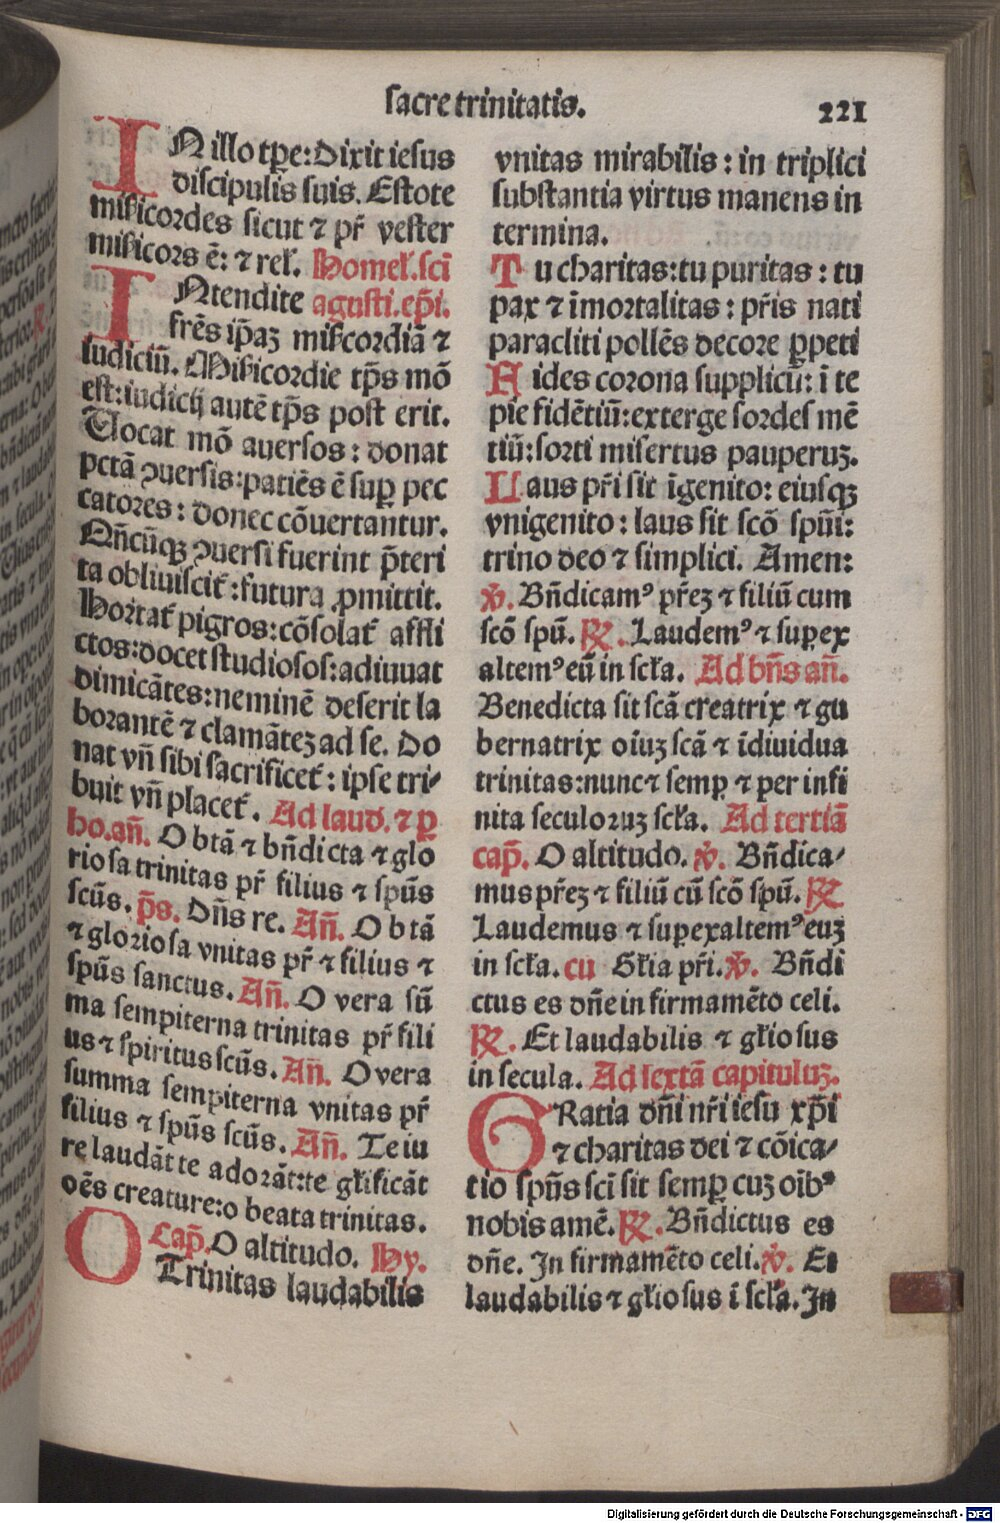 sacre trinitatis.
221
IN illo tp̄e: Dixit iesus
discipulis suis. Estote
misicordes sicut ⁊ pr̄ vester
misicors ē: ⁊ rel̄. Homel̄. sci
INtendite agusti. ep̄i.
frēs ip̄aꝫ misicordiā ⁊
iudiciū. Misicordie tp̄s mō
est: iudicij autē tp̄s post erit.
Uocat mō auersos: donat
pctā ꝯuersis: patiēs ē suꝑ pec
catores: donec cōuertantur.
Qn̄cūqꝫ ꝯuersi fuerint p̄teri
ta obliuiscit̄: futura ꝓmittit.
Hortat̄ pigros: cōsolat̄ affli
ctos: docet studiosos: adiuuat
dimicātes: neminē deserit la
borantē ⁊ clamāteꝫ ad se. Do
nat vn̄ sibi sacrificet̄: ipse tri⸗
buit vn̄ placet̄. Ad laud. ⁊ ꝑ
ho. an̄. O btā ⁊ bn̄dicta ⁊ glo
riosa trinitas pr̄ filius ⁊ spūs
scūs. p̄s. Dn̄s re. An̄. O btā
⁊ gloriosa vnitas pr̄ ⁊ filius ⁊
spūs sanctus. An̄. O vera sū
ma sempiterna trinitas pr̄ fili
us ⁊ spiritus scūs. An̄. O vera
summa sempiterna vnitas pr̄
filius ⁊ spūs scūs. An̄. Te iu
re laudāt te adorāt: te gl̄ificāt
oēs creature: o beata trinitas.
Cap̄. O altitudo. Hy.
O Trinitas laudabilis
vnitas mirabilis: in triplici
substantia virtus manens in
termina.
Tu charitas: tu puritas: tu
pax ⁊ īmortalitas: pr̄is nati
paracliti pollēs decore ꝑpeti
Aides corona supplicū: ī te
pie fidētiū: exterge sordes mē
tiū: sorti misertus pauperuꝫ.
Laus pr̄i sit īgenito: eiusqꝫ
vnigenito: laus sit scō spūi:
trino deo ⁊ simplici. Amen:
℣. Bn̄dicamꝰ pr̄eꝫ ⁊ filiū cum
scō spū. ℟. Laudemꝰ ⁊ supex
altemꝰ eū in scl̄a. Ad bn̄s an̄.
Benedicta sit scā creatrix ⁊ gu
bernatrix oīuꝫ scā ⁊ īdiuidua
trinitas: nunc ⁊ semꝑ ⁊ per infi
nita seculoruꝫ scl̄a. Ad tertiā
cap̄. O altitudo. ℣. Bn̄dica⸗
mus pr̄eꝫ ⁊ filiū cū scō spū. ℟
Laudemus ⁊ suꝑexaltemꝰ euꝫ
in scl̄a. cu Gl̄ia pr̄i. ℣. Bn̄di
ctus es dn̄e in firmamēto celi.
℟. Et laudabilis ⁊ gl̄iosus
in secula. Ad sextā capituluꝫ.
GRatia dn̄i nr̄i iesu xp̄i
⁊ charitas dei ⁊ cōica⸗
tio spūs sci sit semꝑ cuꝫ oībꝰ
nobis amē. ℟. Bn̄dictus es
dn̄e. In firmamēto celi. ℣. Et
laudabilis ⁊ gl̄iosus ī scl̄a. In
Digitalisierung gefördert durch die Deutsche Forschungsgemeinschaft - DFG